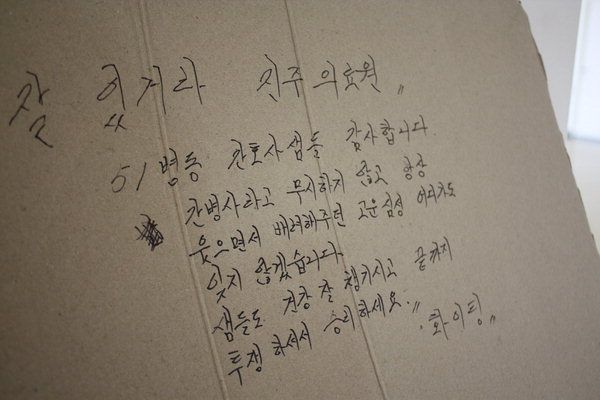 잘 있거라 진주의료원 〃
51병동 간호사샘들 감사합니다.
간병사라고 무시하지 않고 항상
웃으면서 배려해주던 고운심성
잊지 않겠습니다.
샘들도 건강 잘 챙기시고 끝까지
투쟁하셔서 승리하세요.〃
화이팅〃